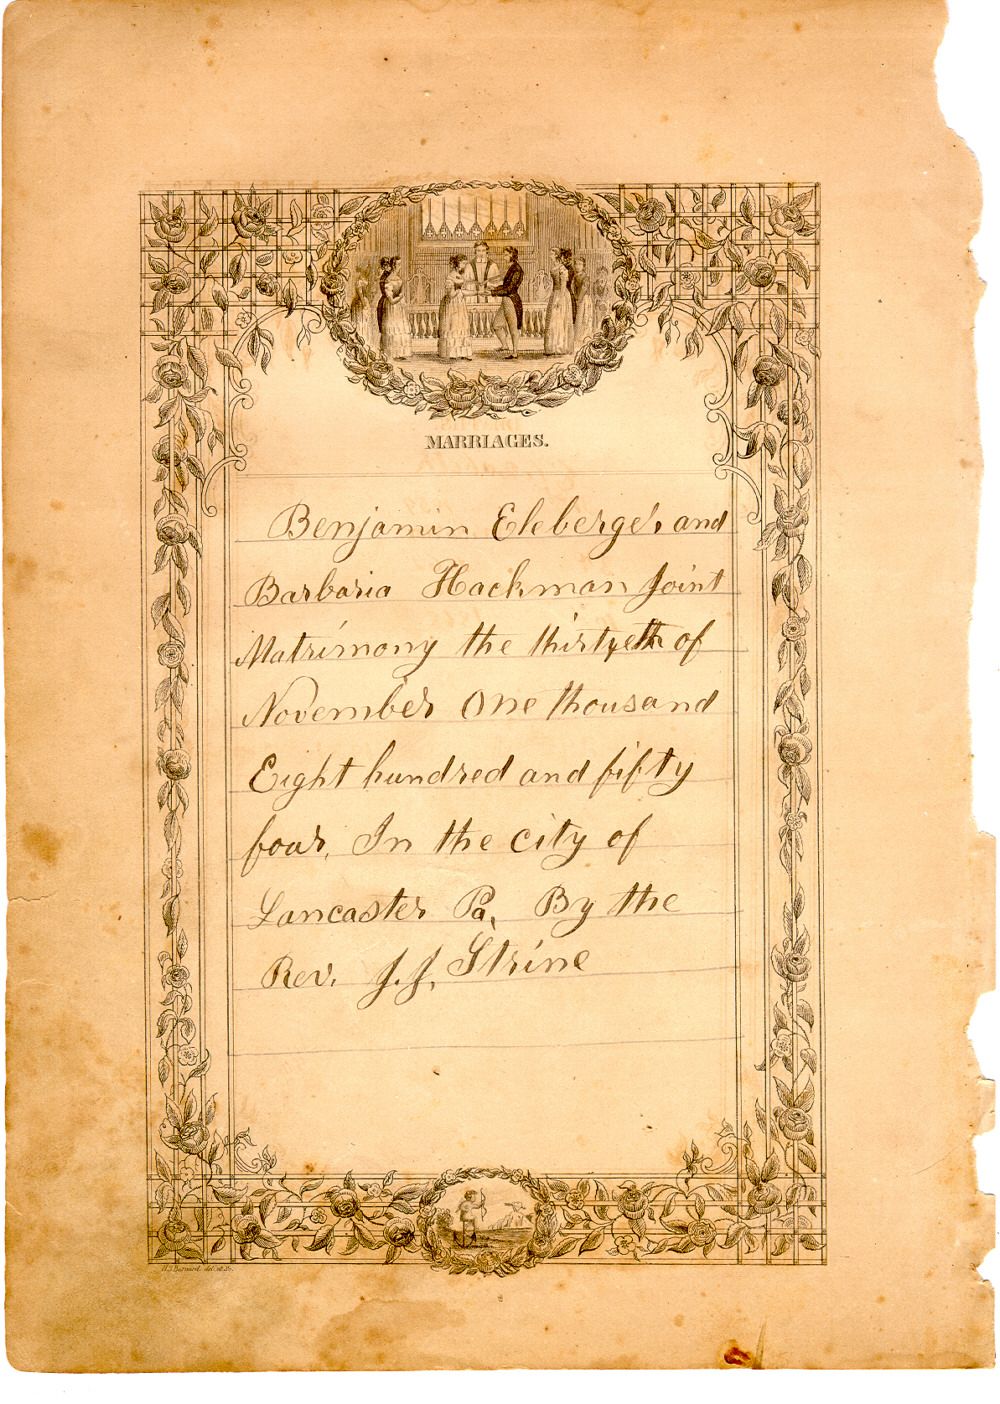 MARRIAGES.
Benjamin Eleberger and
Barbaria Hackman Joint
Matrimony the thirtyeth of
November One thousand
Eight hundred and fifty
four, In the city of
Lancaster Pa, By the
Rev. J. J. Strine